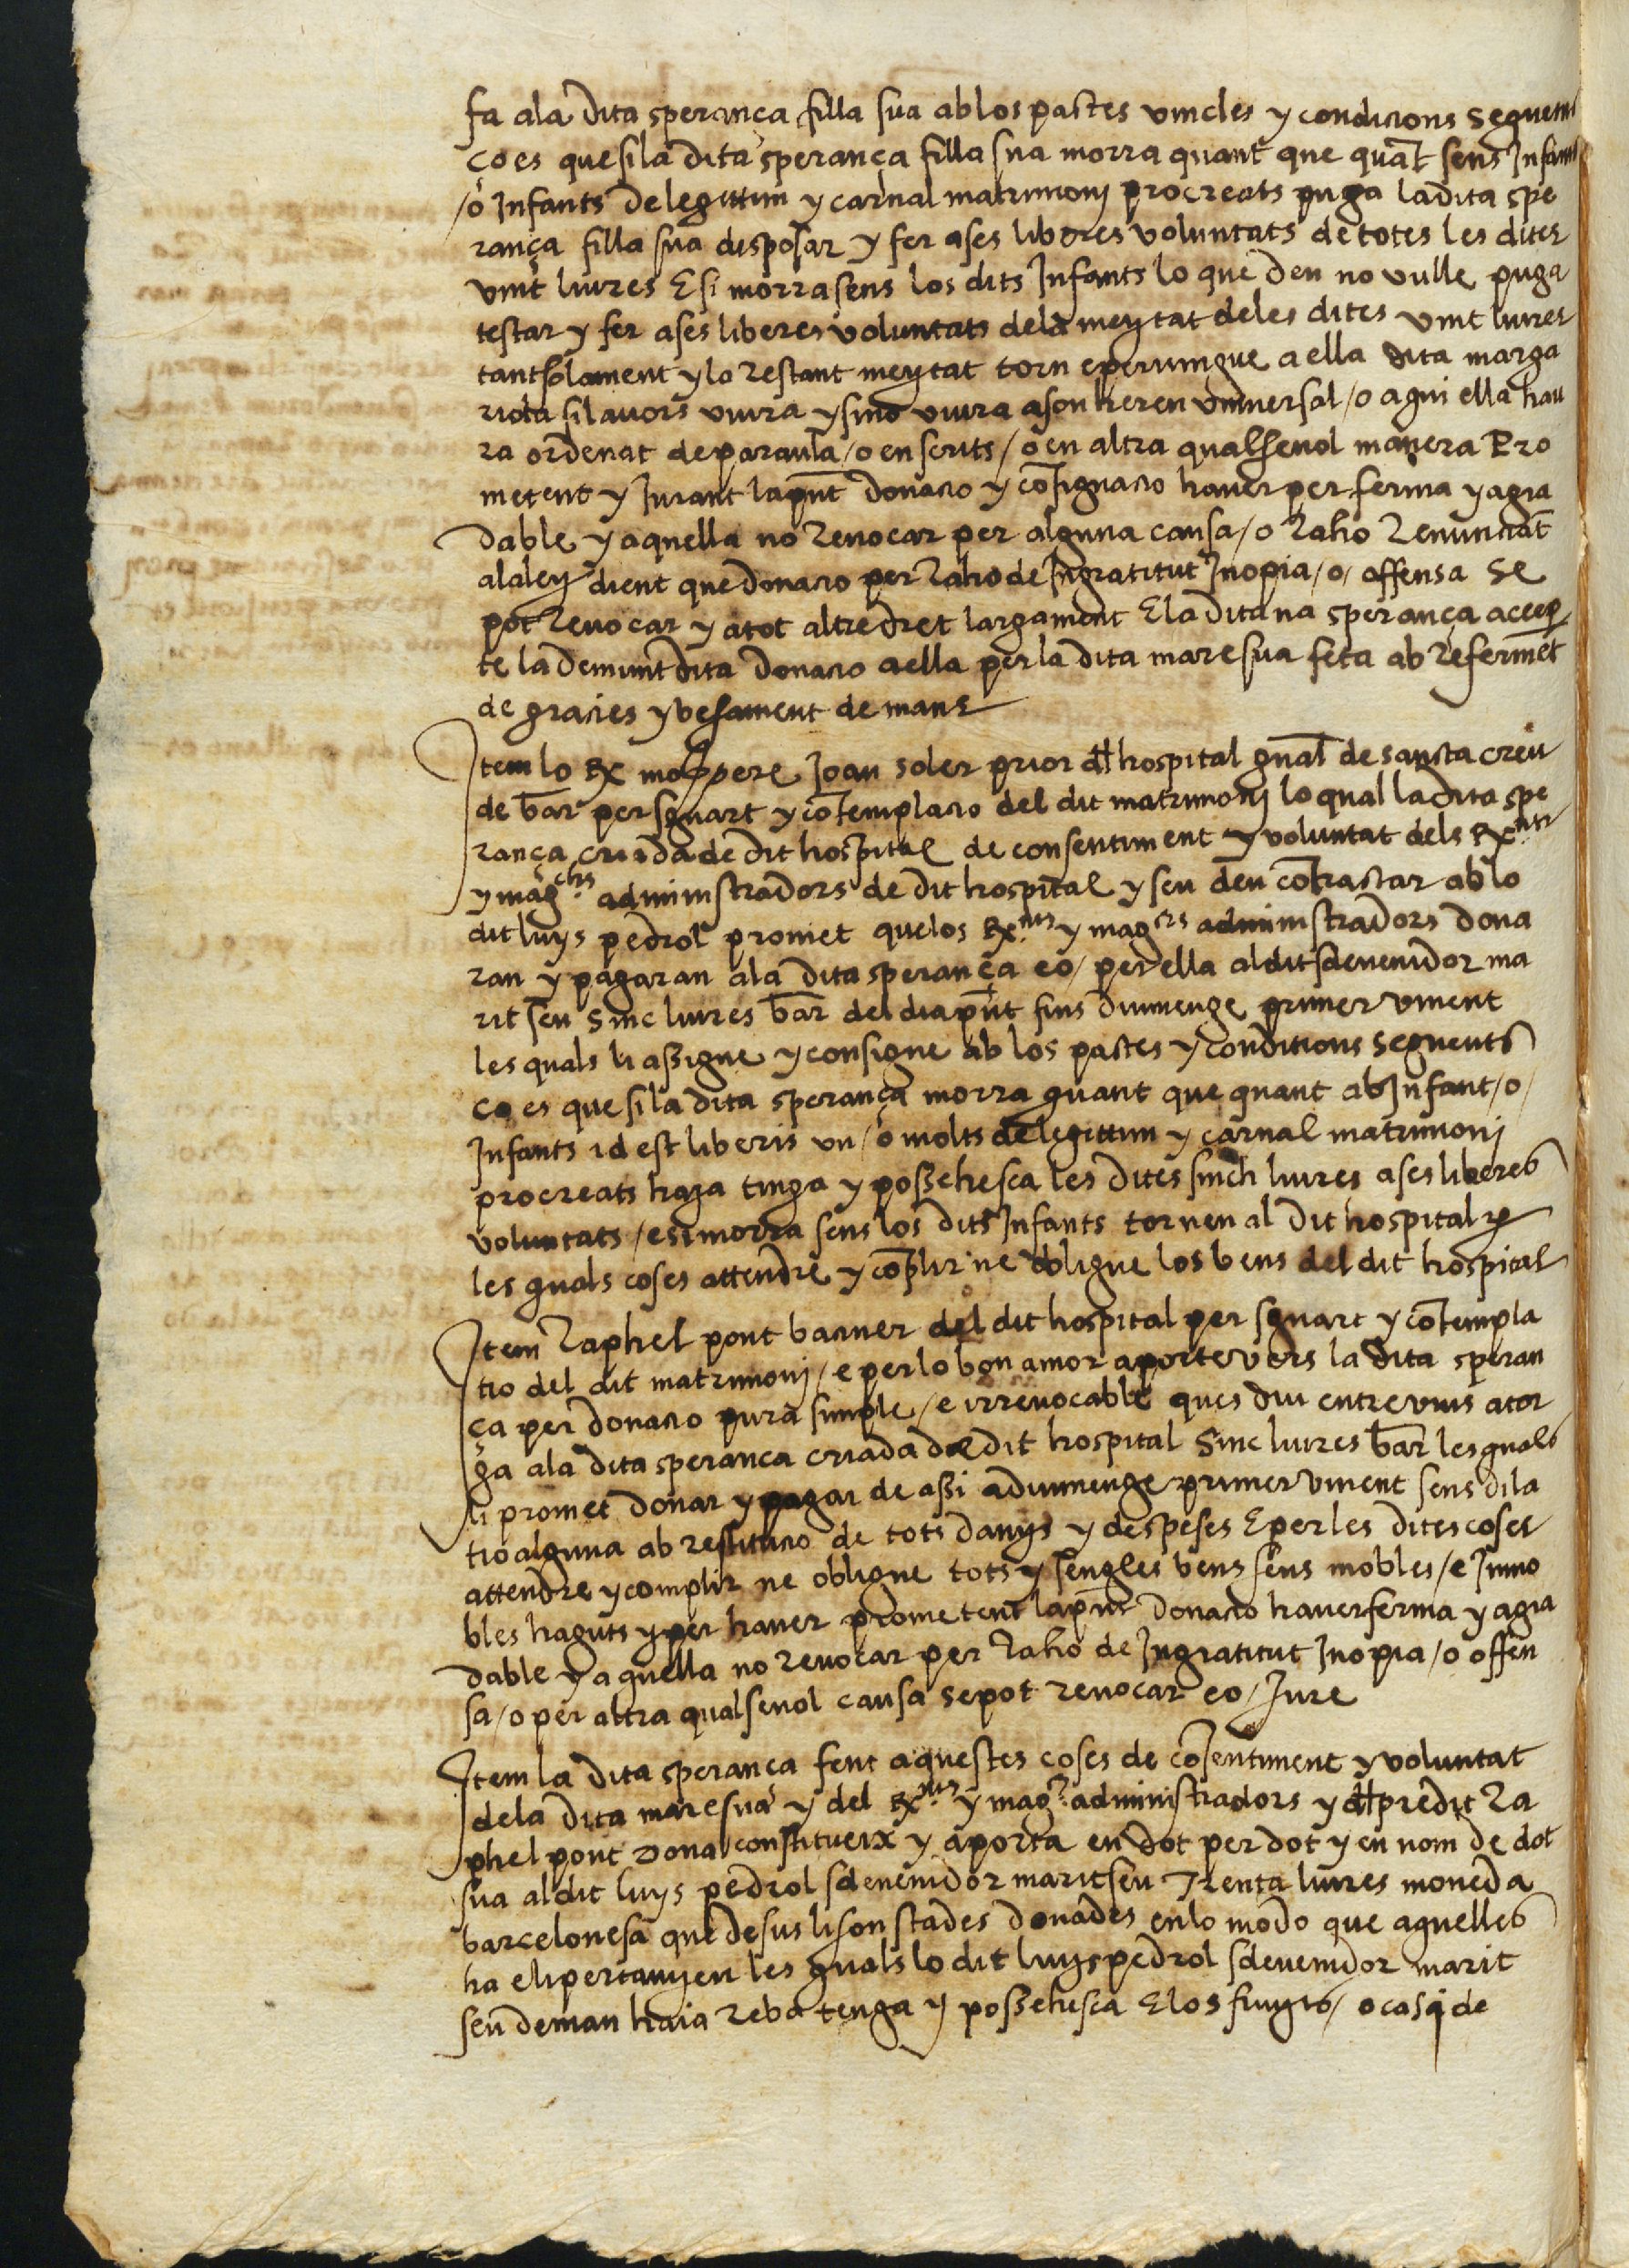 fa ala dita sperança filla sua ab los pactes vincles y condicions seguents
ço es que si la dita sperança filla sua morra quant que quāt sens Infant
/o Infants de legittim y carnal matrimonj procreats puga la dita spe
rança filla sua disposar y fer a ses liberes voluntats de totes les dites
vint liures E si morra sens los dits Infants lo que deu no vulle puga
testar y fer a ses liberes voluntats dela meytat deles dites vint liures
tantsolament y lo restant meytat torn e pervingue a ella dita marga
rida si lauors viura y sino viura a son hereu vniuersal /o a qui ella hau
ra ordenat de paraula /o en scrits /o en altra qualseuol manera Pro
metent y Jurant la pn̄t donacio y cōsignacio hauer per ferma y agra
dable y aquella no reuocar per alguna causa /o raho renunciāt
ala ley dient que donacio per raho de Ingratitut Inopia /o/ offensa se
pot reuocar y a tot altre dret largament E la dita na sperança accep
te la demunt dita donacio a ella per la dita mare sua feta ab refermēt
de gracies y besament de mans
Item lo Rx mossen pere Joan soler prior dl̄ hospital gn̄al de sancta creu
de bar̄ per sguart y cōtemplacio del dit matrimonj lo qual la dita spe
rança criada de dit hospital de consentiment y voluntat dels Rx.nts
y mag.chs administradors de dit hospital y seu deu cōtractar ab lo
dit luys pedrol promet que los Rx.nts y mag.cs administradors dona
ran y pagaran ala dita sperança eo/ per ella al dit sdeuenidor ma
rit seu sinc liures bar̄ del dia pn̄t fins diumenge primer vinent
les quals li assigne y consigne ab los pactes y conditions seguents
ço es que si la dita sperança morra quant que quant ab Infant /o/
Infants id est liberis vn /o molts de legittim y carnal matrimonj
procreats haja tinga y possehesca les dites sinch liures a ses liberes
voluntats /e si morra sens los dits Infants tornen al dit hospital per
les quals coses attendre y cōplir ne obligue los bens del dit hospital
Item raphel pont baciner del dit hospital per sguart y cōtempla
tio del dit matrimonj /e per lo bon amor aporte vers la dita speran
ça per donacio pura simple /e irreuocable ques diu entre vius ator
ga ala dita sperança criada de dit hospital Sinc liures bar̄ les quals
li promet donar y pagar de assi a diumenge primer vinent sens dila
tio alguna ab restitutio de tots danys y despeses E per les dites coses
attendre y complir ne obligue tots y sengles bens seus mobles /e Immo
bles haguts y per hauer prometent la pn̄t donacio hauer ferma y agra
dable y aquella no reuocar per raho de Ingratitut Inopia /o offen
sa /o per altra qualseuol causa se pot reuocar eo/ Jure
Item la dita sperança fent aquestes coses de cōsentiment y voluntat
dela dita mare sua y del Rx.nts y mag.s administradors y dl̄ predit ra
phel pont dona constitueix y aporta en dot per dot y en nom de dot
sua al dit luys pedrol sdeuenidor marit seu Trenta liures moneda
barcelonesa que desus li son stades donades en lo modo que aquelles
ha e li pertanyen les quals lo dit luys pedrol sdeuenidor marit
seu deman haia reba tenga y possehesca E los fruyts /o cas q̄ de